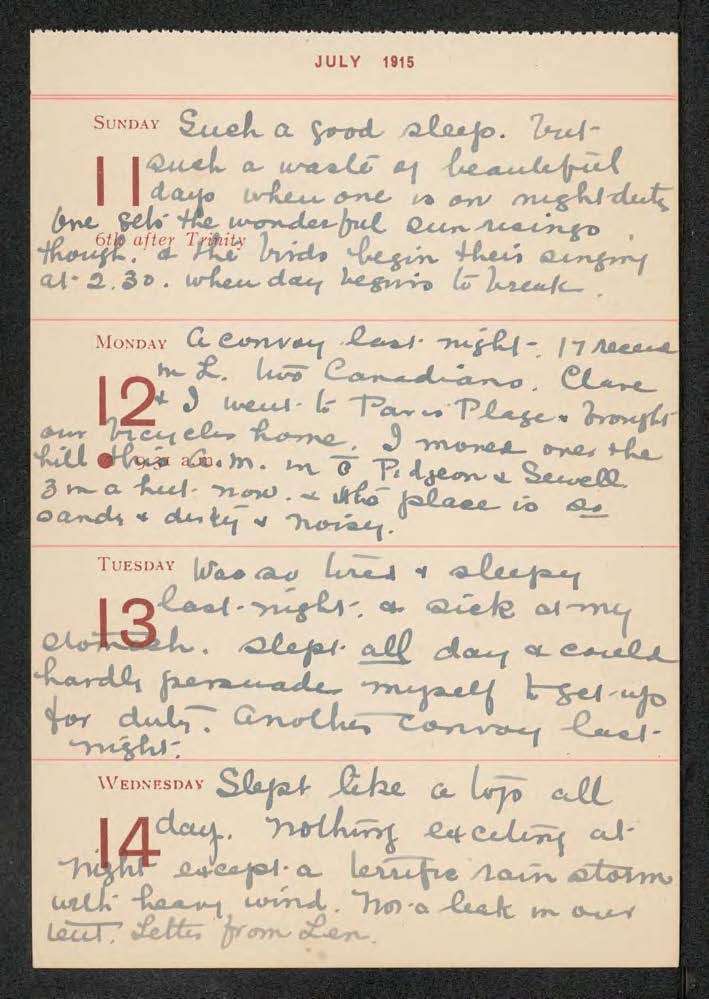 JULY 1915
SUNDAY Such a good sleep. but
11 such a waste of beautiful
days when one is on night duty
One gets the wonderful sun risings
6th after Trinity
though. & the birds begin their singing
at 2.30. when day begins to break.
MONDAY A convoy last night. 17 received
12 in L. two Canadians. Clare
& I went to Paris Plage & brought
our bicycles home. I moved over the
hill this a.m. in c̄ Pidgeon & Sewell.
9.31 a.m.
3 in a hut now. & this place is so
sandy & dirty & noisy.
TUESDAY Was so tired & sleepy
13 last night. & sick at my
stomach. Slept all day & could
hardly persuade myself to get up
for duty. Another convoy last
night.
WEDNESDAY Slept like a top all
14 day. Nothing exciting at
night except a terrific rain storm
with heavy wind. Not a leak in our
tent. Letter from Len.